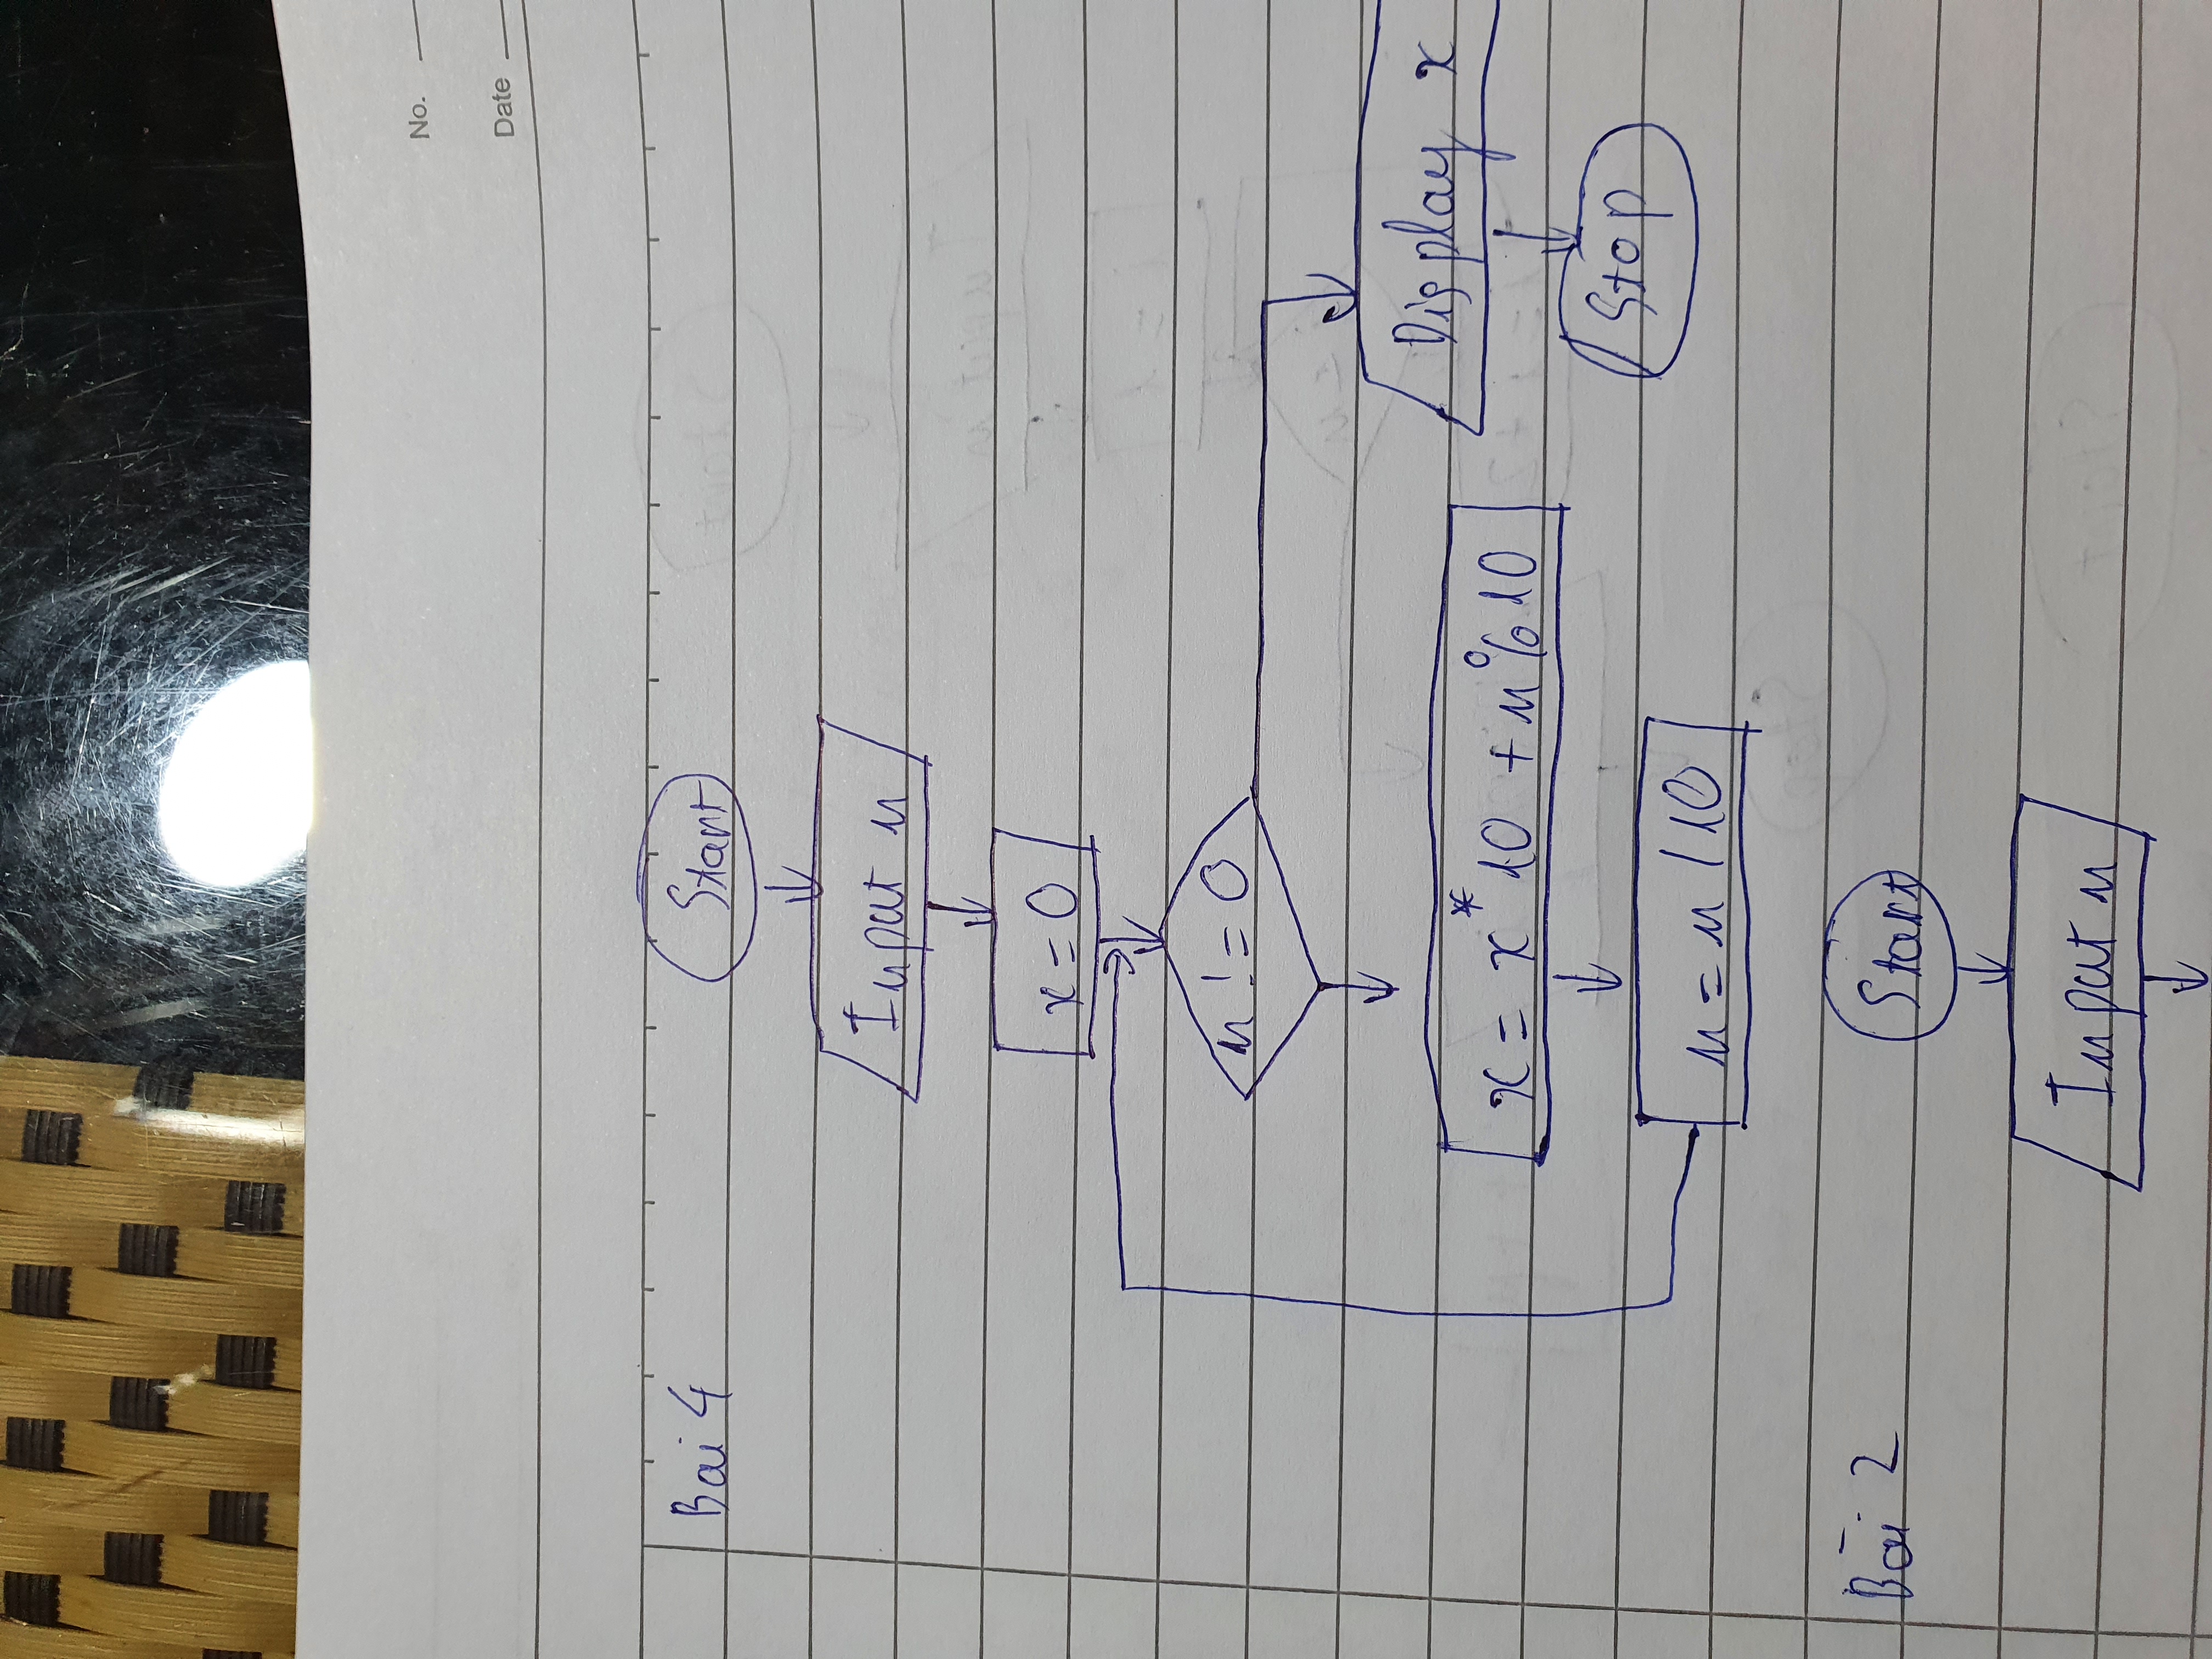 No.
Date
Bai 4
Start
Input n
x = 0
n != 0
x = x * 10 + n % 10
n = n / 10
Display x
Stop
Bài 2
Start
Input n